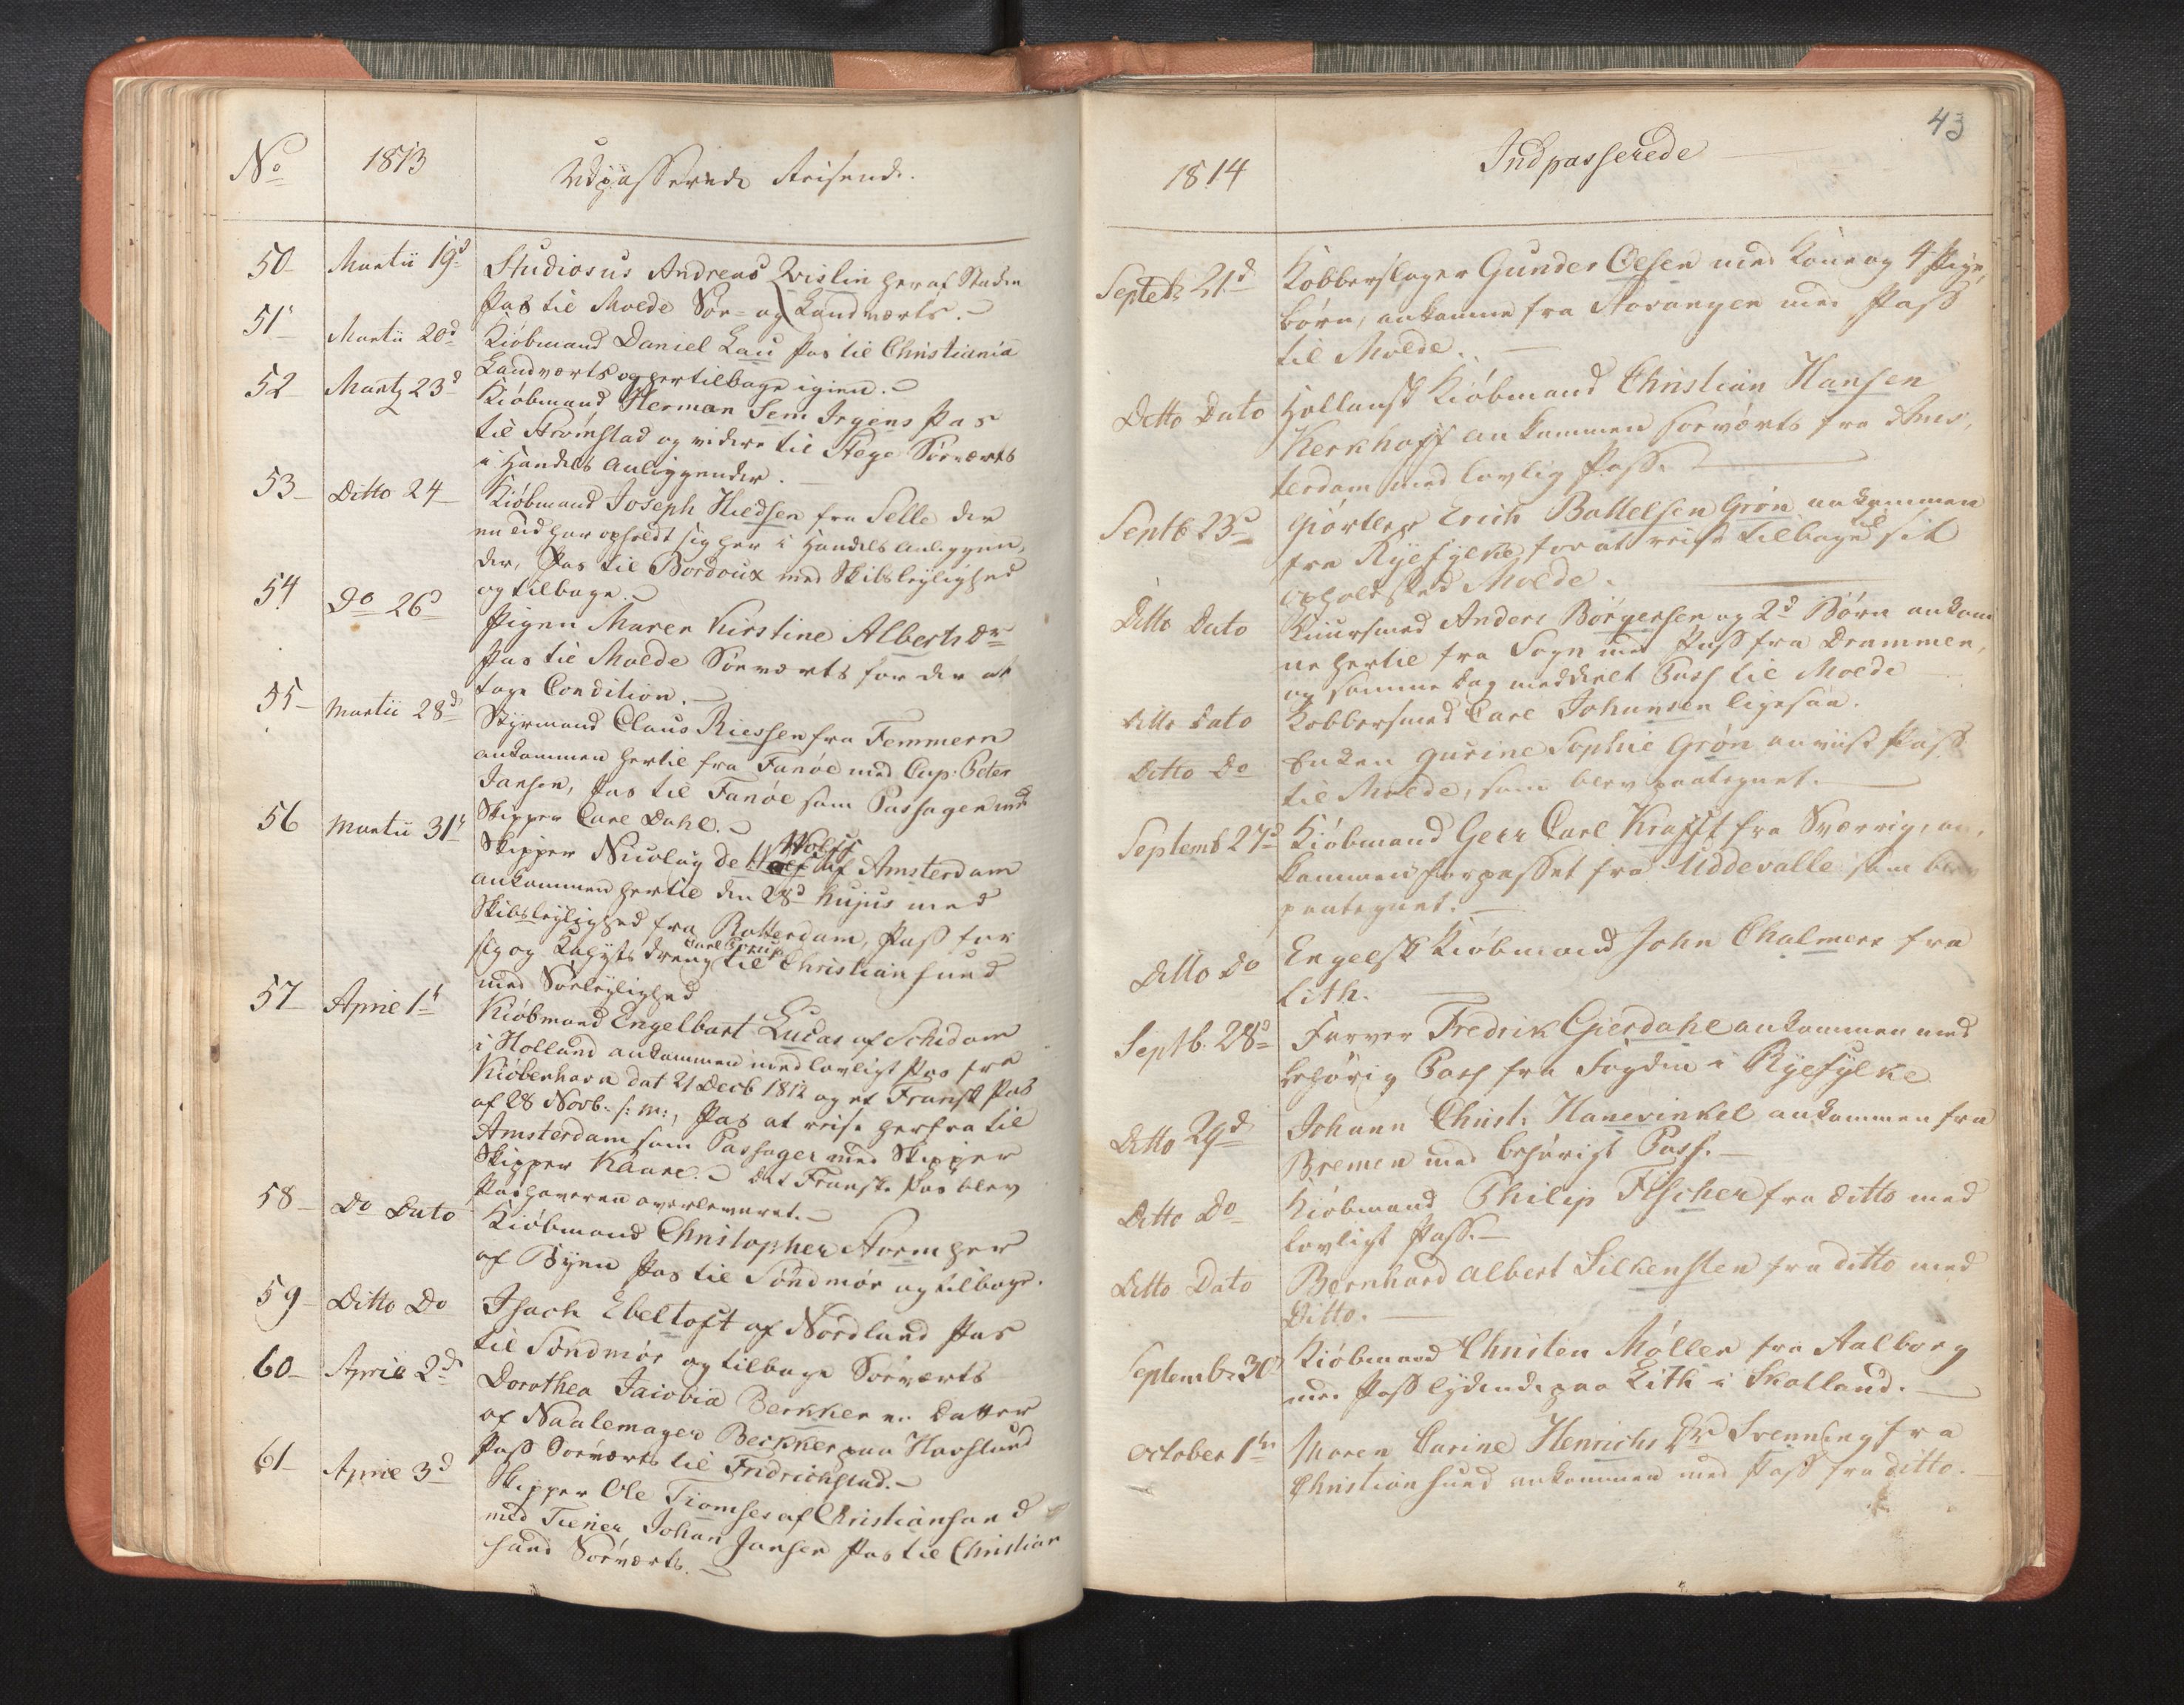 No 1813 Udpasserede Reisende.
50 Martii 19d Studiosus Andreas Qvislin her af Staden
Pas til Molde Søe- og Landværts.
51 Martii 20d Kiøbmand Daniel Lau Pas til Christiania
Landværts og hertilbage igien.
52 Marty 23d Kiøbmand Herman Sem Irgens Pas
til Strømstad og videre til Stege Søeværts
i Handels Anliggender.
53 Ditto 24 Kiøbmand Joseph Hiedsen fra Selle der
en tid har opholdt sig her i Handels Anliggen,
der, Pas til Bordoux med Skibsleylighed
og tilbage.
54 Do 26d Pigen Maren Kirstine Alberts Dr
Pas til Molde Søeværts for der at
tage Condition.
55 Martii 28d Styrmand Claus Riessen fra Femmern
ankommen hertil fra Fanøe med Cap: Peter
Jansen, Pas til Fanøe som Passager med
Skipper Carl Dahl.
56 Martii 31t Skipper Nicolay de Wolff af Amsterdam
ankommen hertil den 28d hujus med
Skibsleylighed fra Rotterdam, Pass for
sig og Kahyts dreng Carl til Christiansund
med Søeleylighed
57 April 1t Kiøbmand Engelbart Lucas af Schidam
i Holland ankommen med lovligt Pas fra
Kiøbenhavn dat 21 Decb 1812 og et Fransk Pas
af 28 Novb. s: m:, Pas at reise herfra til
Amsterdam som Passager med Skipper
Skipper Kaare. Det Franske Pas blev
Pashaveren overleveret.
58 Do Dato Kiøbmand Christopher Stormher
af Byen Pas til Søndmør og tilbage.
59 Ditto Do Isach Ebeltoft af Nordland Pas
til Søndmør og tilbage Søeværts
60 April 2d Dorothea Jacobia Berkker en Datter
af Naalemager Berkker paa Havslund
Pass Søeværts til Fridrichstad.
61 April 3d Skipper Ole Tiomses af Christiansand
med Tiener Johan Jansen Pas til Christian
sand Søeværts.
43
1814 Indpasserede
Septbr 21d Kobberslager Gunder Oelsen med Kone og 4 Pige,
børn, ankomne fra Stavanger med Pass
til Molde.
Ditto Dato Hollansk Kiøbmand Christian Hansen
Kerkhoff ankommen søeværts fra Ams,
terdam med lovlig Pass.
Septb 23d Giørtler Erich Battelsen Grøn ankommen
fra Ryefylke for at reise tilbage til sit
opholdsted Molde.
Ditto Dato Kuursmed Anders Børgersen og 2d Børn ankom
ne hertil fra Sogn med Pass fra Drammen,
og samme dag meddeelt Pass til Molde
Ditto Dato Kobbersmed Carl Johansen ligesaa.
Ditto Do Enken Gurine Sophie Grøn anviist Pass
til Molde, som blev paategnet.
Septemb 27d Kiøbmand Geer Carl Krafft fra Sverrig, an,
kommen herpasset fra Uddevalle som blev
paategnet.
Ditto Do Engelsk Kiøbmand John Chalmers fra
Lith.
Septb. 28d Farver Fredrik Gierdahl ankommen med
behørig Pass fra Fogden i Ryefylke
Ditto 29d Johann Christ: Hanewinkel ankommen fra
Bremen med behørigt Pass.
Ditto Do Kiøbmand Philip Fischer fra ditto med
lovligt Pass.
Ditto Dato Bernhard Albert Silkensten fra ditto med
Ditto.
Septembr 30 Kiøbmand Christen Møller fra Aalborg
med Pass lydende paa Lith i Skotland.
October 1te Maren Carine Henrichs Dr Svenning fra
Christiansund ankommen med Pass fra ditto.